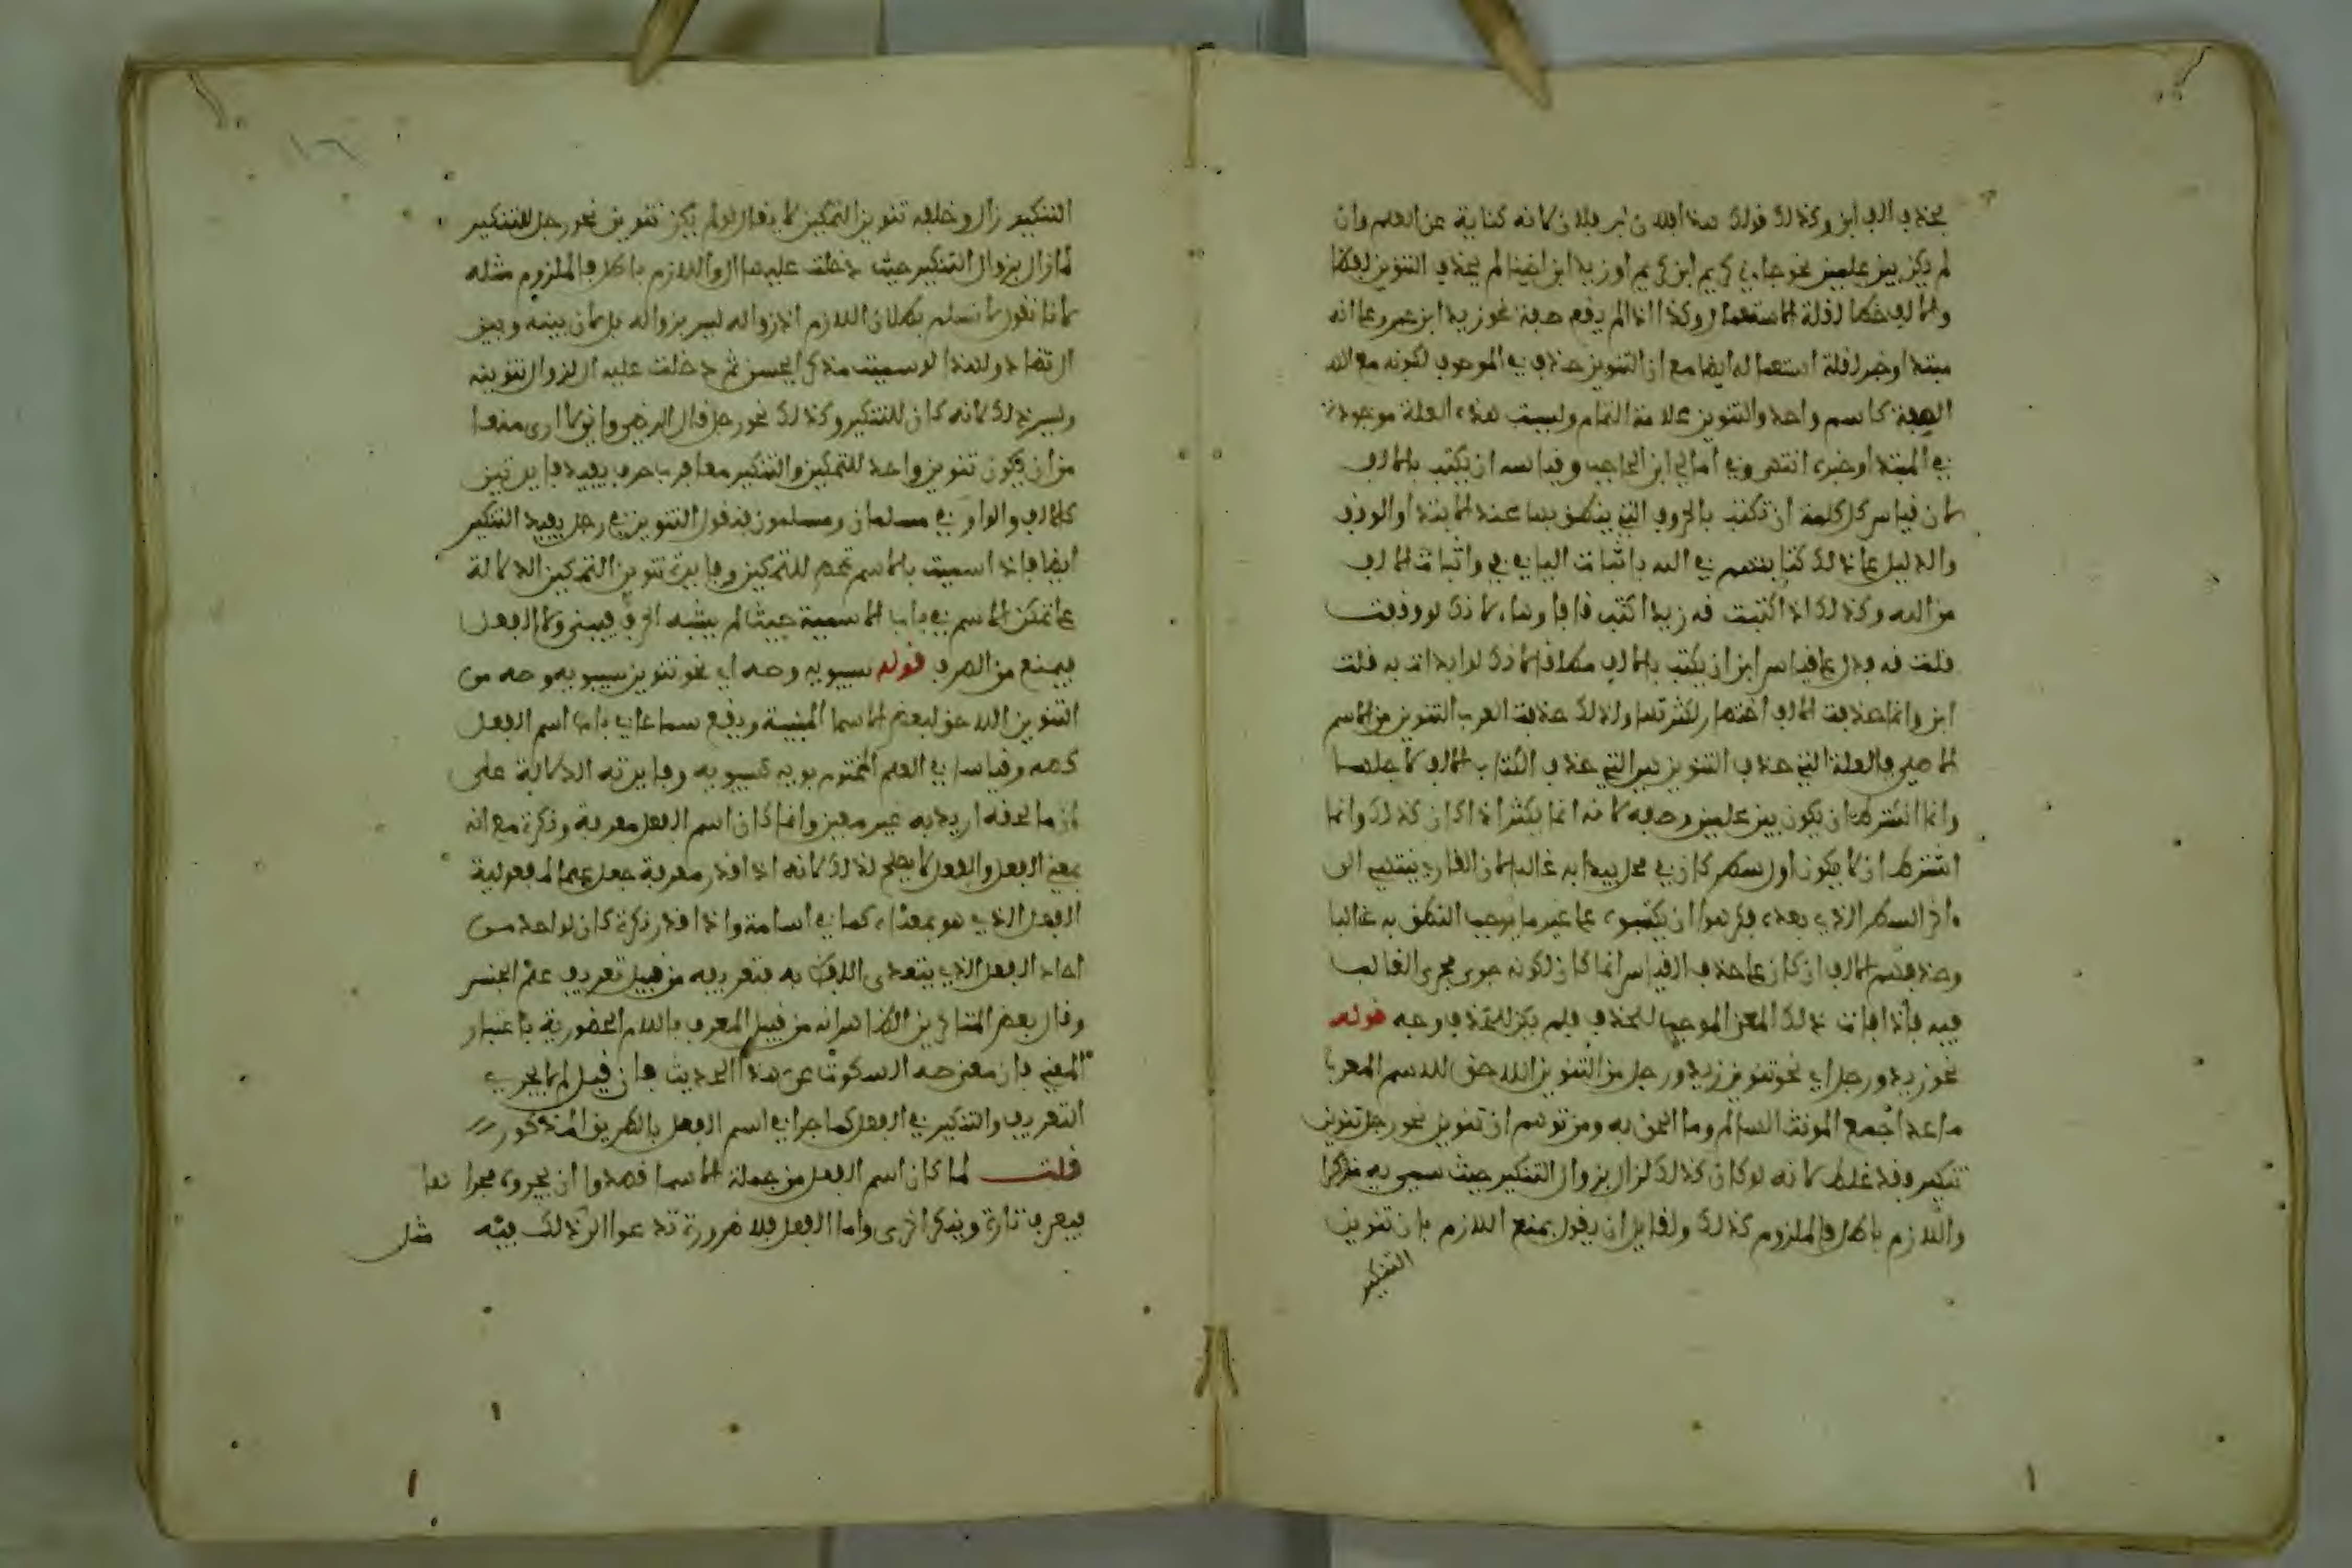 بحذف الف ابن وكذلك قولك هذا فلان بن فلان لانه كناية عن العلم وان
لم يكن بين علمين نحو جاءني كريم ابن كريم او زيد ابن اخينا لم يحذف التنوين لفظا
ولا الالف خطا لقلة الاستعمال وكذا اذا لم يقع صفة نحو زيد ابن عمرو على انه
مبتدا وخبر لقلة استعماله ايضا مع ان التنوين حذف في الموصوف لكونه مع
الصفة كاسم واحد والتنوين علامة التمام وليست هذه العلة موجودة
في المبتدا وخبره انتهى وفي امالي ابن الحاجب وقياسه ان يكتب بالالف
لان قياس كل كلمة ان تكتب بالحروف التي ينطق بها عند الابتدا والوقف
والدليل على ذلك كتابتهم في اله باثبات اليا في في واثبات الالف
من اله وكذلك اذا كتبت قه زيدا كتب قافا وهاء لانك لو وقفت
قلت قه فدل على قياس ابن ان يكتب بالالف مطلقا لانك لو ابتدات به قلت
ابن وانما حذفت الالف اختصارا لكثرتها ولذلك حذفت العرب التنوين من الاسم
الاصلي فالعلة التي حذف التنوين هي التي حذف الكتاب الالف لاجلها
وانما اشترط ان يكون بين علمين وصفة لانه انما يكثر اذا كان كذلك وانما
اشترط ان لا يكون اول سطر كان في محل يبدا به غالبا لان القارئ ينتهي الى
اخر السطر الذي بعده فكرهوا ان يكتبوه على غير ما يوجب النطق به غالبا
وحذفهم الالف ان كان على حذف القياس انما كان لكونه جرى مجرى الغالب
فيه فاذا فات ذلك المعنى الموجب للحذف فلم يكن للحذف وجه قوله
نحو زيد ورجل اي نحو تنوين زيد ورجل من التنوين اللاحق للاسم المعرب
ما عدا جمع المونث السالم وما الحق به ومن توهم ان تنوين نحو رجل تنوين
تنكير وقد غلط لانه لو كان كذلك لزال بزوال التنكير حيث سمي به مذكرا
واللازم باطل فالملزوم كذلك ولقايل ان يقول بمنع اللازم بان تنوين
التنكير
١٦
التنكير زال وخلفه تنوين التمكين لا يقال لو لم يكن تنوين نحو رجل للتنكير
لما زال بزوال التنكير حيث دخلت عليه ال واللازم باطل فالملزوم مثله
لانا نقول لا نسلم بطلان اللازم اذ زواله ليس بزواله بل لان بينه وبين
ال تضاد ولهذا لو سميت مذكرا بحسن ثم دخلت عليه ال لزوال تنوينه
وليس ذلك لانه كان للتنكير وكذلك نحو رجل قال الرضي وانا لا ارى منعا
من ان يكون تنوين واحد للتمكين والتنكير معا فرب حرف يفيد فايدتين
كالالف والواو في مسلمان ومسلمون فنقول التنوين في رجل يفيد التنكير
ايضا فاذا سميت بالاسم تمحض للتمكين وفايدة تنوين التمكين الدلالة
على تمكن الاسم في باب الاسمية حيث لم يشبه الحرف فيبنى ولا الفعل
فيمنع من الصرف قوله سيبويه وصه اي نحو تنوين سيبويه وصه من
التنوين اللاحق لبعض الاسما المبنية ويقع سماعا في باب اسم الفعل
كصه وقياسا في العلم المختوم بويه كسيبويه وفايدته الدلالة على
ان ما لحقه اريد به غير معين وانما كان اسم الفعل معرفة ونكرة مع انه
بمعنى الفعل والفعل لا يصلح لذلك لانه اذا قدر معرفة جعل علما لمفعولية
الفعل الذي هو بمعناه كما في اسامة واذا قدر نكرة كان لواحد من
احاد الفعل الذي يتعدى اللفظ به فتعريفه من قبيل تعريف علم الجنس
وقال بعض المتاخرين الظاهر انه من قبيل المعرف باللام الحضورية باعتبار
المعنى فان معنى صه السكوت عن هذا الحديث فان قيل لم لا يجري
التعريف والتنكير في الفعل كما جرا في اسم الفعل بالطريق المذكور
قلت لما كان اسم الفعل من جملة الاسما قصدوا ان يجروه مجراها
فيعرف تارة وينكر اخرى واما الفعل فلا ضرورة تدعوا الى ذلك فيه
مثل